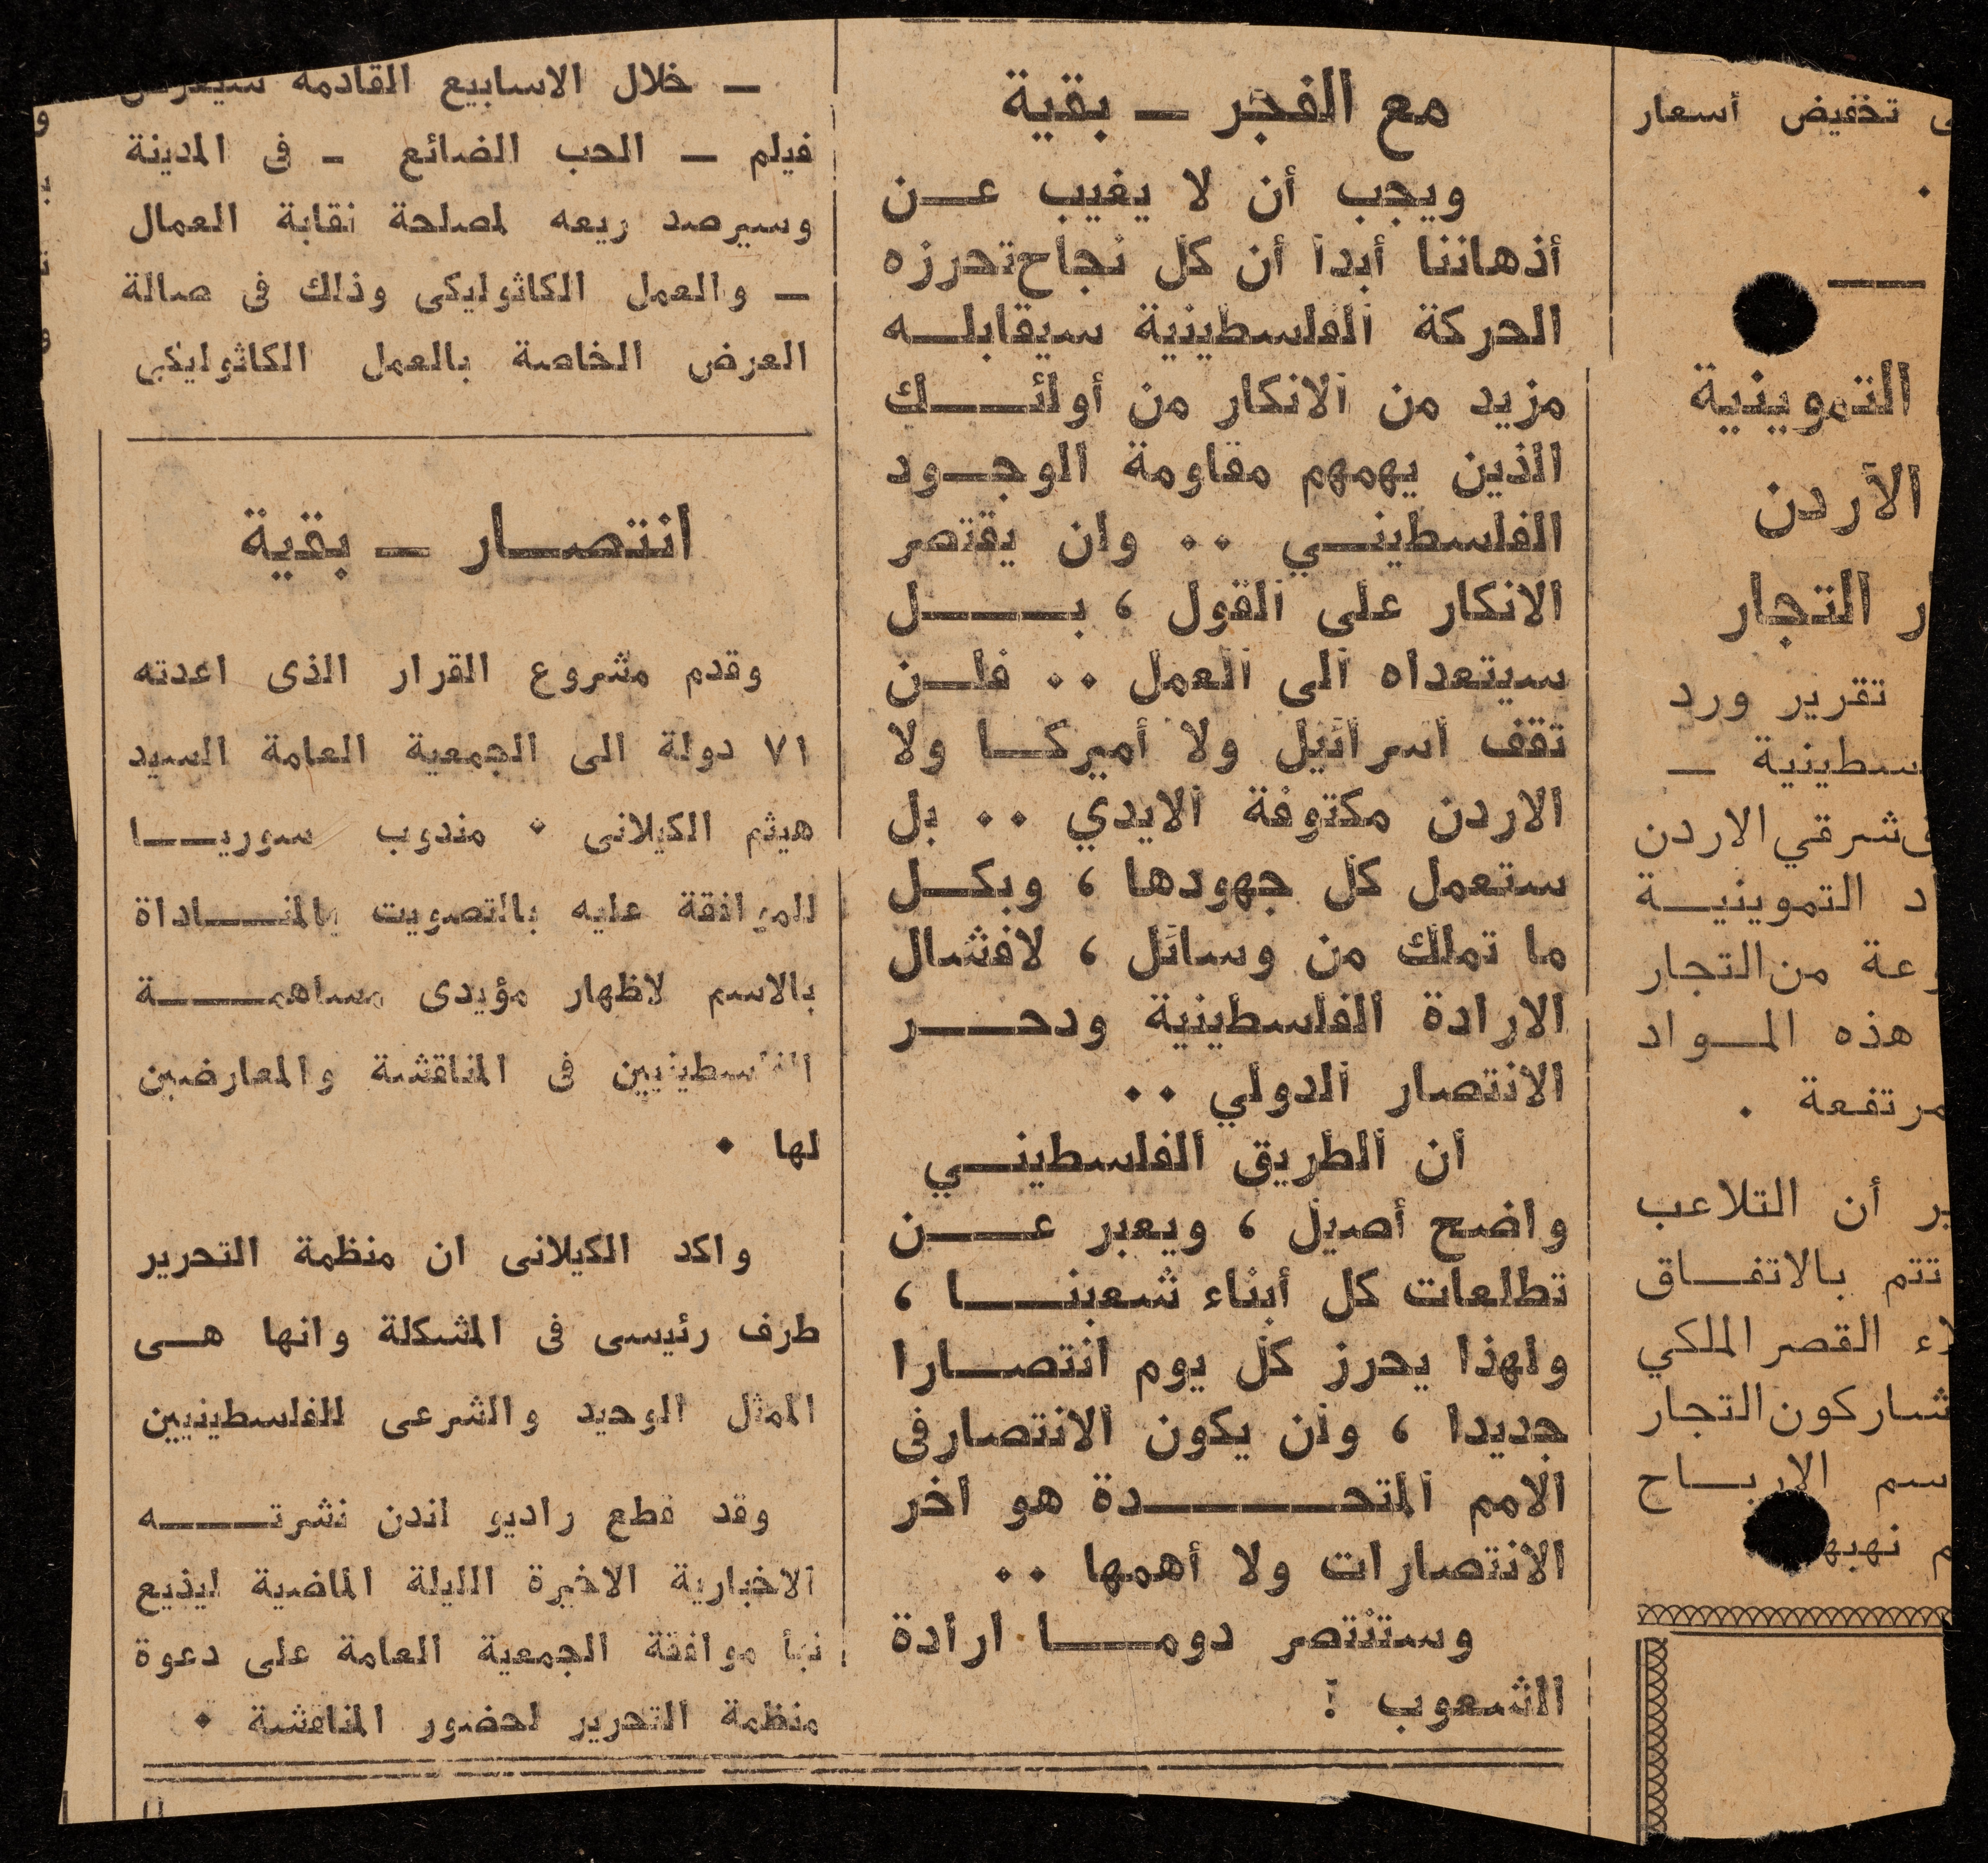 تخفيض أسعار
التموينية
الأردن
التجار
تقرير ورد
سطينية —
شرقي الاردن
د التموينيـــة
وعة من التجار
هذه المـــواد
مرتفعة .
ير أن التلاعب
تتم بالاتفـــاق
لاء القصر الملكي
شاركون التجار
سم الاربـــاح
م نهبها
مع الفجر — بقية
ويجب أن لا يغيب عـــن
أذهاننا أبدا أن كل نجاح تحرزه
الحركة الفلسطينية سيقابلـــه
مزيد من الانكار من أولئـــك
الذين يهمهم مقاومة الوجـــود
الفلسطينـــي ٠٠ ولن يقتصر
الانكار على القول ، بـــل
سيتعداه الى العمل ٠٠ فلـــن
تقف اسرائيل ولا أميركـــا ولا
الاردن مكتوفة الايدي ٠٠ بل
ستعمل كل جهودها ، وبكـــل
ما تملك من وسائل ، لافشال
الارادة الفلسطينية ودحـــر
الانتصار الدولي ٠٠
ان الطريق الفلسطينـــي
واضح أصيل ، ويعبر عـــن
تطلعات كل أبناء شعبنـــا ،
ولهذا يحرز كل يوم انتصـــارا
جديدا ، ولن يكون الانتصار فى
الامم المتحـــدة هو اخر
الانتصارات ولا أهمها ٠٠
وستنتصر دومـــا ارادة
الشعوب !
— خلال الاسابيع القادمة سيعرض
فيلم — الحب الضائع — فى المدينة
وسيرصد ريعه لمصلحة نقابة العمال
— والعمل الكاثوليكى وذلك فى صالة
العرض الخاصة بالعمل الكاثوليكى
انتصـــار — بقية
وقدم مشروع القرار الذى اعدته
٧١ دولة الى الجمعية العامة السيد
هيثم الكيلانى ٠ مندوب سوريـــا
للموافقة عليه بالتصويت بالمنـــاداة
بالاسم لاظهار مؤيدى مساهمـــة
الفلسطينيين فى المناقشة والمعارضين
لها ٠
واكد الكيلانى ان منظمة التحرير
طرف رئيسى فى المشكلة وانها هـــى
الممثل الوحيد والشرعى للفلسطينيين
وقد قطع راديو لندن نشرتـــه
الاخبارية الاخيرة الليلة الماضية ليذيع
نبأ موافقة الجمعية العامة على دعوة
منظمة التحرير لحضور المناقشة ٠